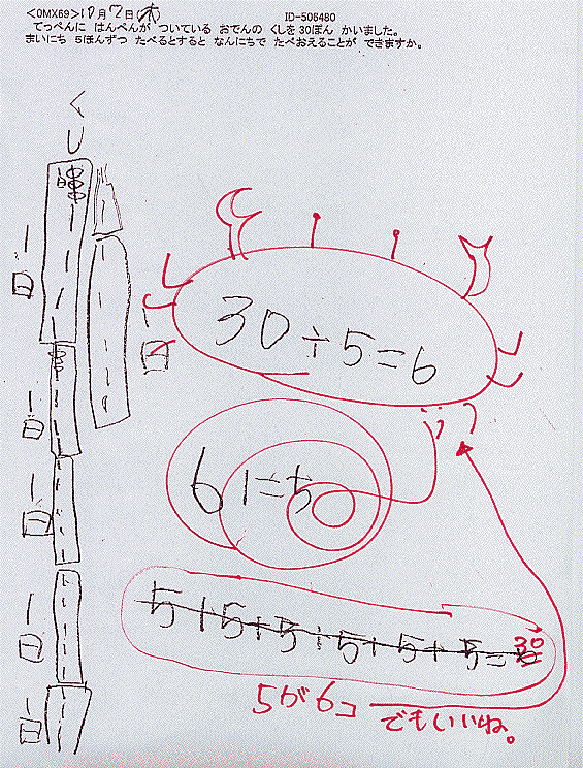 <0MX69>10月7日(木) ID-506480
てっぺんに はんぺんが ついている おでんの くしを 30ぽん かいました。
まいにち 5ほんずつ たべるとすると なんにちで たべおえることが できますか。
くし
1日
1日
1日
1日
1日
1日
30÷5=6
6にち
5+5+5+5+5+5=30
5が6コ でもいいね。